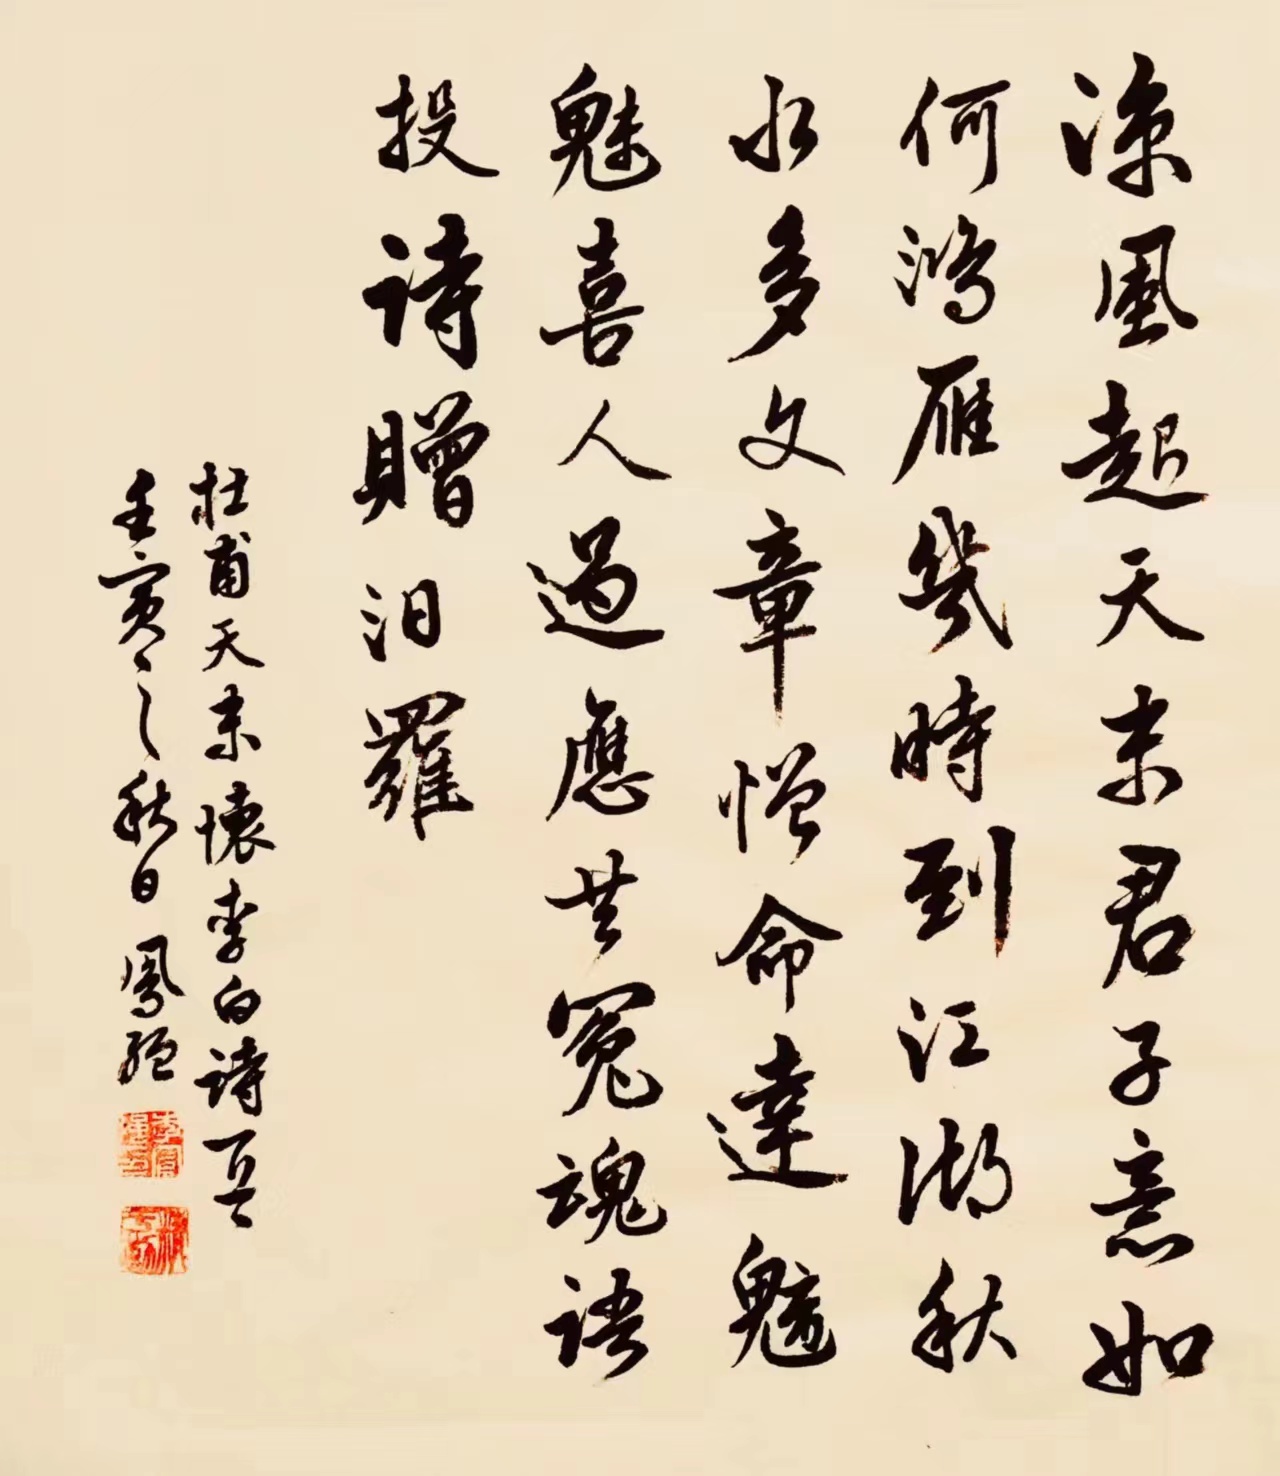 涼風起天末君子意如
何鴻雁幾時到江湖秋
水多文章憎命達魑
魅喜人過應共冤魂語
投詩贈汨羅
杜甫天末懷李白詩一首
壬寅之秋日鳳強